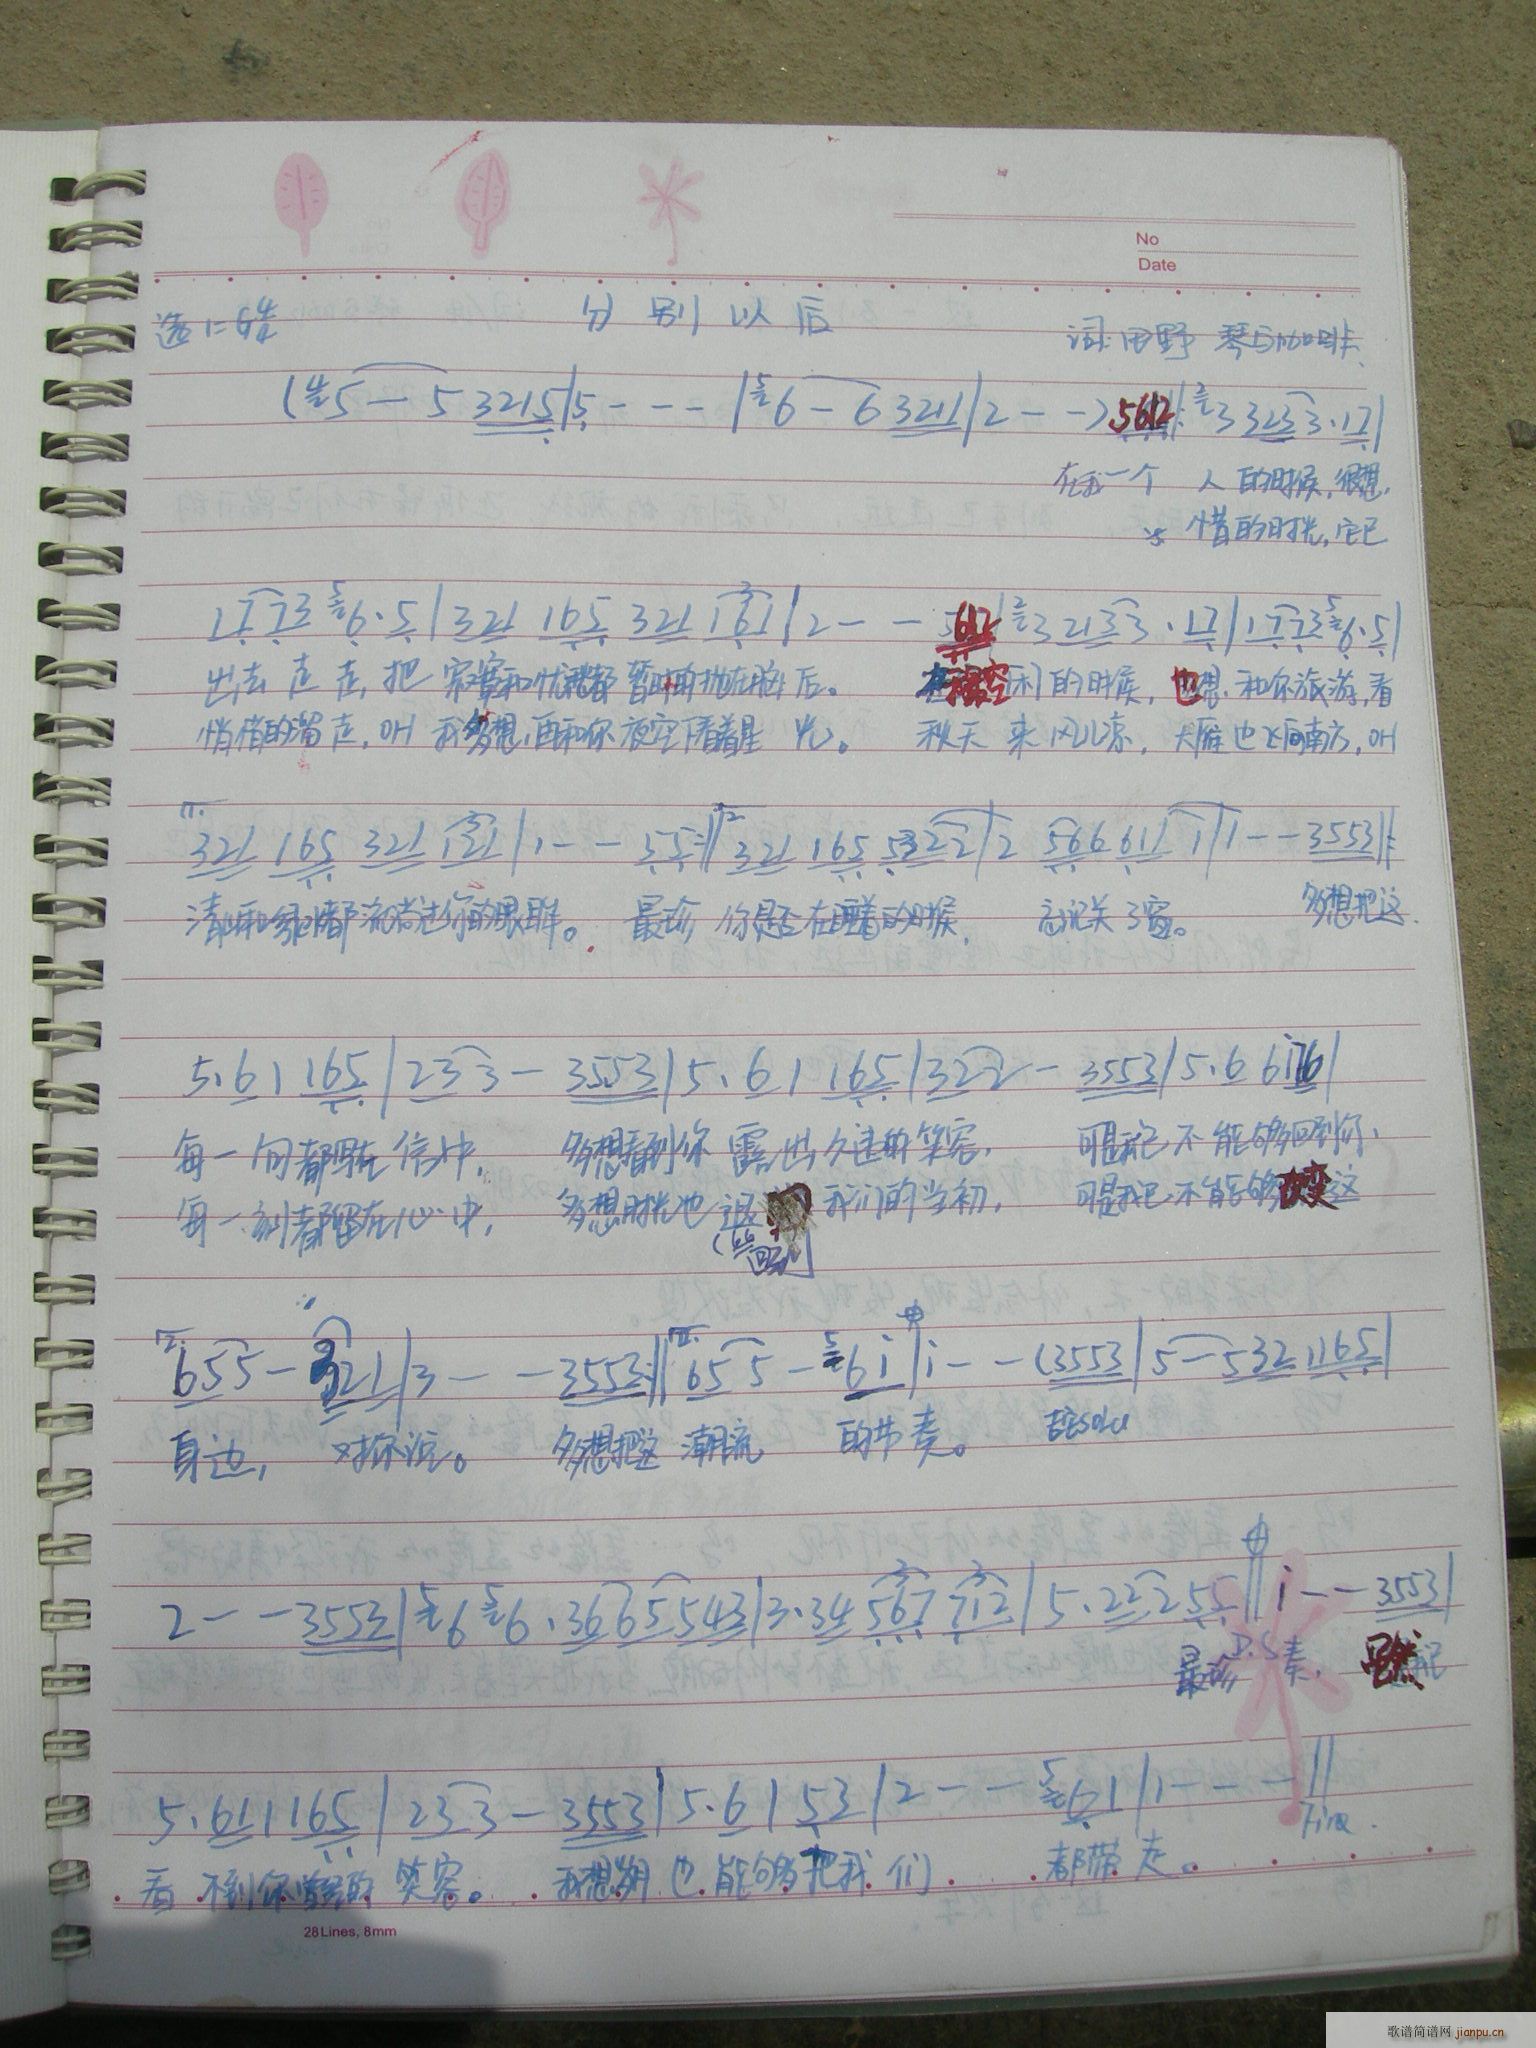 No
Date
分别以后
词:田野
(5 — 5 3215|5 - - - |6 — 6 3211|2 - - )5612|: 3 3233·17|
在我一个 人的时候,很想
惜的时光,它已
1773 6·5|321 165 321 161|2 - - 5612|3 2133·17|1773 6·5|
出去走走,把寂寞和忧愁都暂时的抛在脑后。 空闲的时候,也想和你旅游,看
悄悄的溜走,OH 我多想,再和你夜空下看着星光。 秋天来风儿凉,大雁也飞向南方,OH
321 165 321 121|1 - - 55:||321 165 5322|2 566 611 1|1 - - 3553||:
都流尚进你的眼眸。 最珍 你是否在睡着的时候, 忘记关了窗。 多想把这
5·61 165|233 - 3553|5·61 165|322 - 3553|5·6 6i76|
每一句都写在信中, 多想看到你露出久违的笑容, 可是我已不能够回到你,
每一刻都留在心中, 多想时光也退 我们的当初, 可是我已不能够改变这
655 - 321|3 - - 3553:||65 5 - 6i|i - - (3553|5 — 532 1165|
身边, 对你说。 多想把这 潮流 的节奏。 solu
2 - - 3553|6 6·3665543|3·34 567 712|5·22255||i - - 3553|
最珍 D.S 奏. 虽然
5·61165|233 - 3553|5·6153|2 - - 61|1 - - - ||
Fine.
看不到你曾经的笑容。 我想期也能够把我们 都带走。
28Lines, 8mm
歌谱简谱网 jianpu.cn